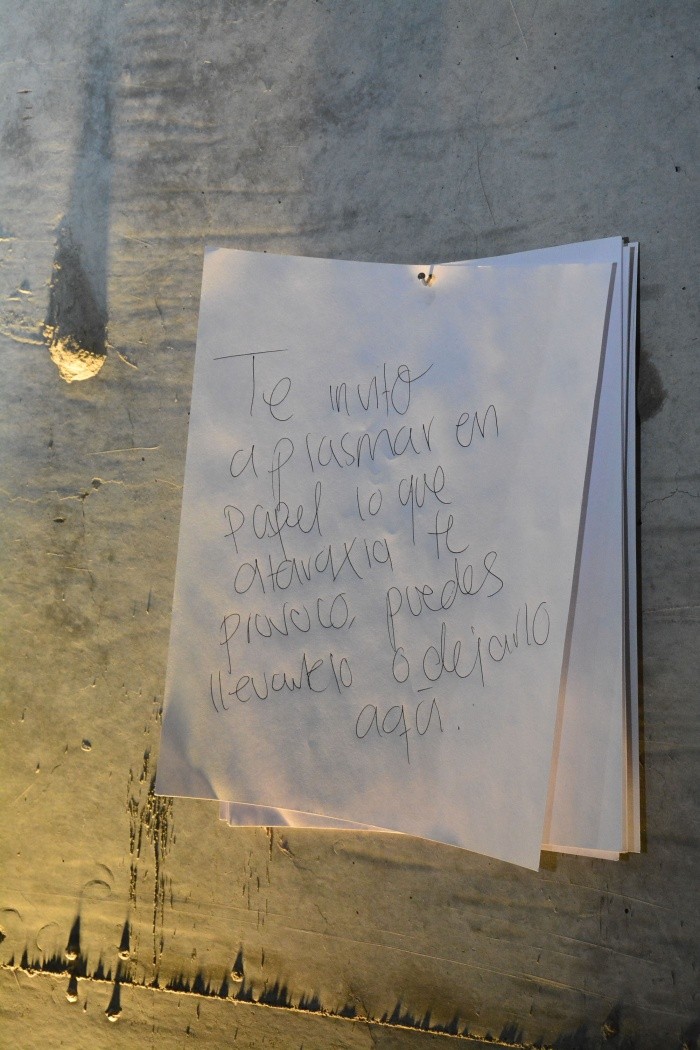 Te invito
a plasmar en
papel lo que
ataraxia te
provoco, puedes
llevartelo o dejarlo
aquí.